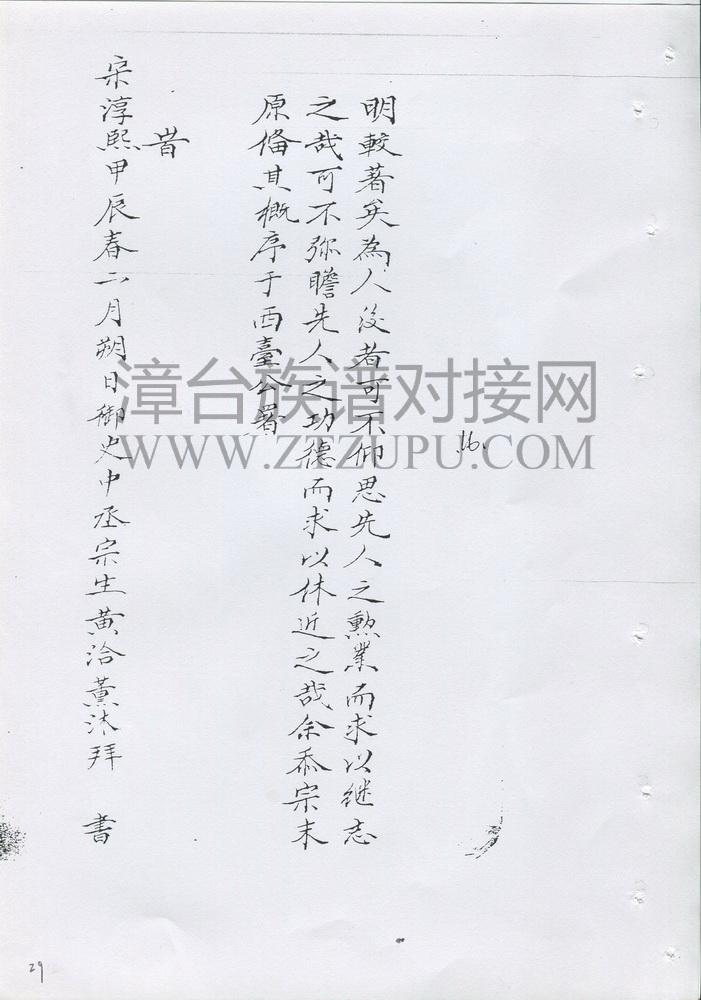 明較著矣為人後者可不仰思先人之勲業而求以继志
之哉可不弥瞻先人之功德而求以休近之哉余忝宗末
原俻其概序于西臺公署
旹
宋淳熙甲辰春二月朔日御史中丞宗生黄洽薰沐拜 書
16.
漳台族谱对接网
WWW.ZTZUPU.COM
29